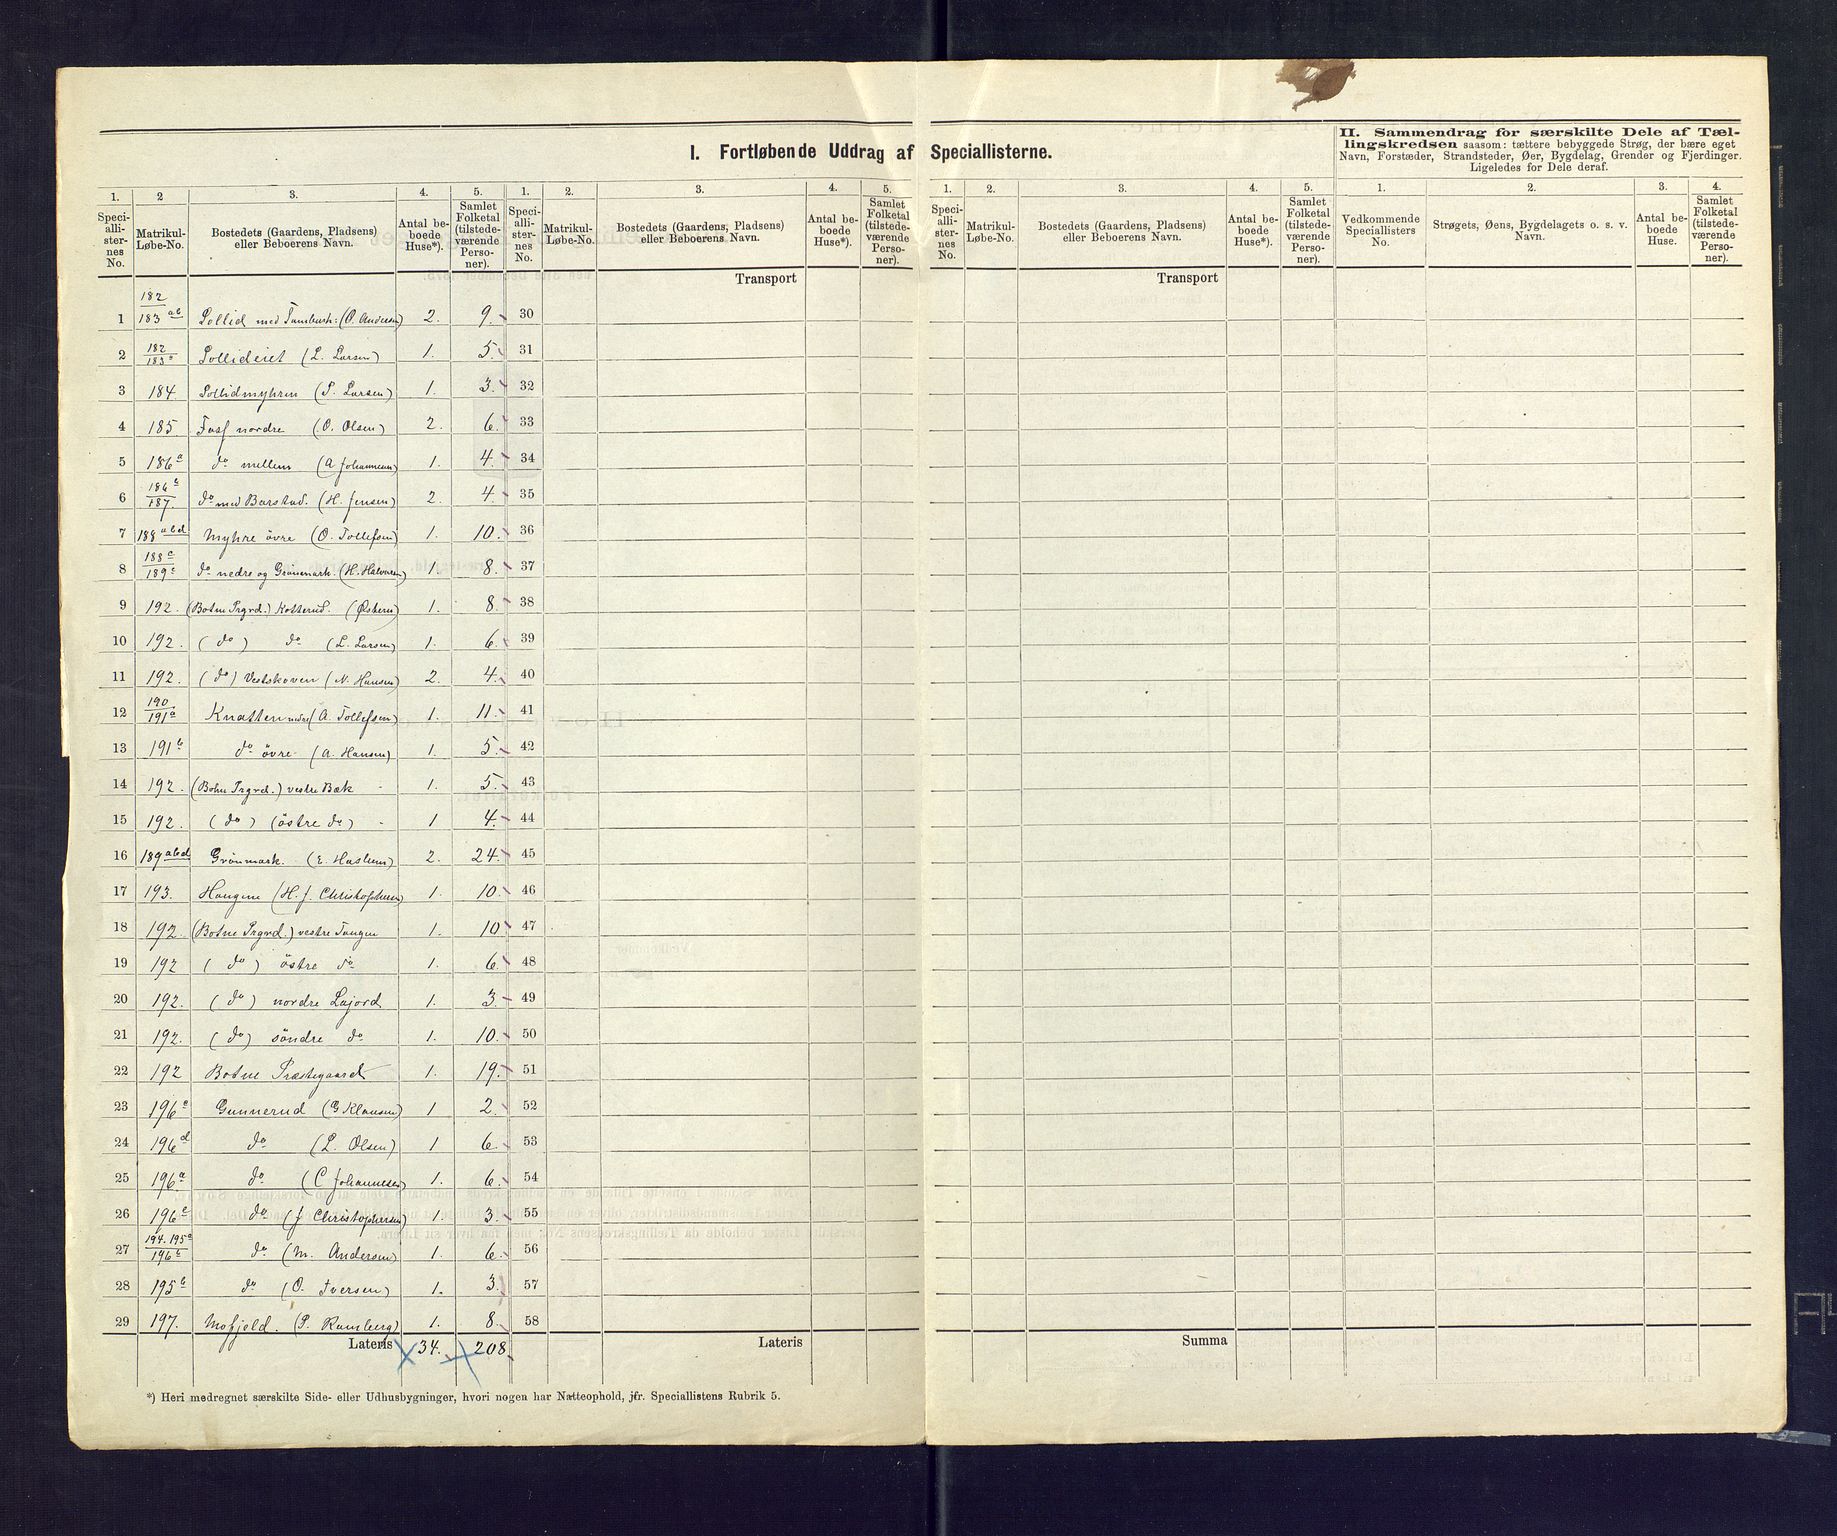 I. Fortløbende Uddrag af Speciallisterne.
II. Sammendrag for særskilte Dele af Tæl-
lingskredsen saasom: tættere bebyggede Strøg, der bære eget
Navn, Forstæder, Strandsteder, Øer, Bygdelag, Grender og Fjerdinger.
Ligeledes for Dele deraf.
1. 2 3. 4. 5. 1. 2. 3. 4. 5. 1. 2. 3. 4. 5. 1. 2. 3. 4.
Speci-alli-ster-nes No. Matrikul-Løbe-No. Bostedets (Gaardens, Pladsens) eller Beboerens Navn. Antal be-boede Huse*). Samlet Folketal (tilstede-værende Perso-ner).
Speci-alli-ster-nes No. Matrikul-Løbe-No. Bostedets (Gaardens, Pladsens) eller Beboerens Navn. Antal be-boede Huse*). Samlet Folketal (tilstede-værende Perso-ner).
Speci-alli-ster-nes No. Matrikul-Løbe-No. Bostedets (Gaardens, Pladsens) eller Beboerens Navn. Antal be-boede Huse*). Samlet Folketal (tilstede-værende Perso-ner).
Vedkommende Speciallisters No. Strøgets, Øens, Bygdelagets o. s. v. Navn. Antal be-boede Huse. Samlet Folketal (tilstede-værende Perso-ner).
Transport Transport
1 182/183 ab Sollid med (O. Andersen) 2. 9. 30
2 182/183 Sollideiet (L. Larsen) 1. 5. 31
3 184 Sollidmyhren (P. Larsen) 1. 3. 32
4 185 nordre (O. Olsen) 2. 6. 33
5 186 a do mellem (A Johannesen) 1. 4. 34
6 186 b/187. do med Barstad. (H. Jensen) 2. 4. 35
7 188 abd Myhre övre (O. Tollefsen) 1. 10. 36
8 188 c/189 c do nedre og Grönmark. (H. Halvorsen) 1. 8. 37
9 192. (Botne Prgrd.) Kotterud. 1. 8. 38
10 192. (do) do (L. Larsen) 1. 6. 39
11 192. (do) Vestskoven (N. Hansen) 2. 4. 40
12 190/191 a Knatten nedre (A. Tollefsen) 1. 11. 41
13 191 b do övre (A. Hansen) 1. 5. 42
14 192. (Botne Prgrd.) vestre Bæk - 1. 5. 43
15 192. (do) (östre do) - 1 4. 44
16 189 abd Grönmark. (E. Haslum) 2. 24. 45
17 193. Haugene (H. J. Christophersen) 1. 10. 46
18 192. (Botne Prgrd.) vestre Tangen 1. 10 47
19 192 (do) östre do 1. 6. 48
20 192. (do) nordre Lajord 1. 3. 49
21 192. (do) söndre do 1. 10. 50
22 192 Botne Præstegaard 1. 19. 51
23 196 Gunnerud (G Klausen) 1 2. 52
24 196 d do (L. Olsen) 1 6. 53
25 196 a do (C Johannesen) 1. 6. 54
26 196 do (J Christophersen) 1. 3. 55
27 194. 195 a/196 b do (M. Andersen) 1. 6. 56
28 195 b do (O. Iversen) 1. 3. 57
29 197. Mofjeld. (P. Ramberg) 1. 8. 58
Lateris 34. 208. Lateris Summa
*) Heri medregnet særskilte Side- eller Udhusbygninger, hvori nogen har Natteophold, jfr. Speciallistens Rubrik 5.